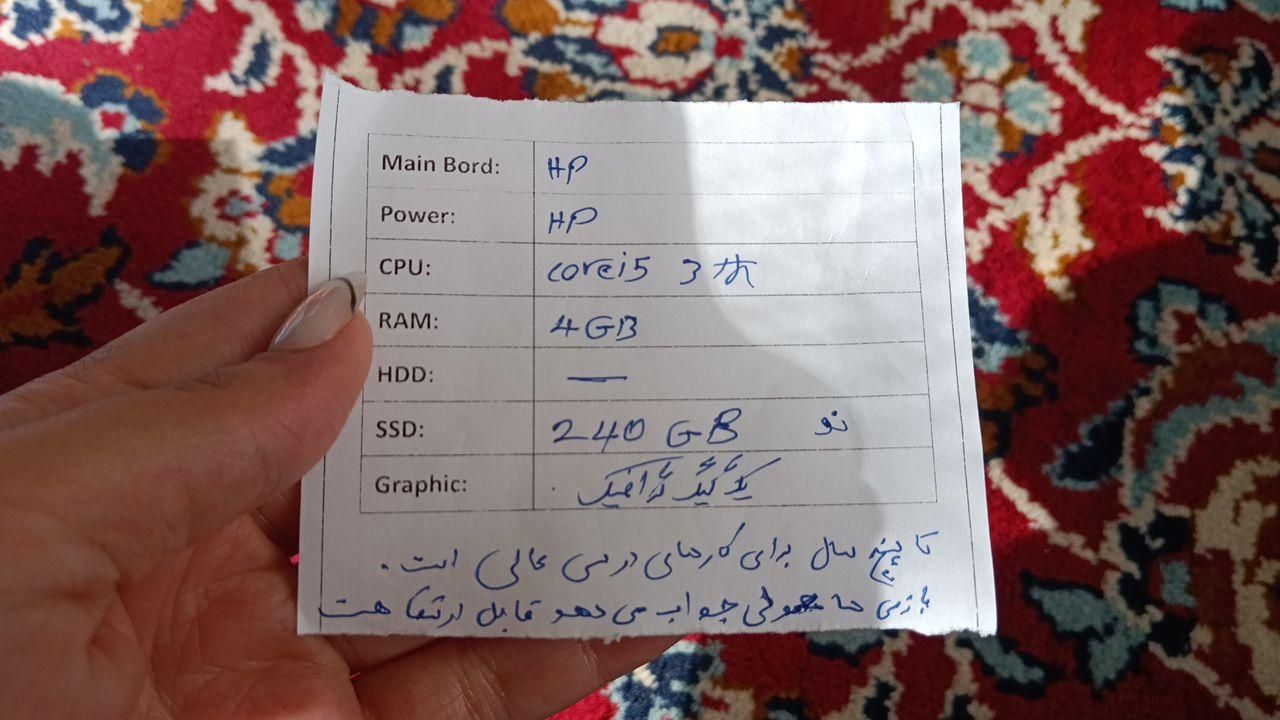 Main Bord: HP
Power: HP
CPU: corei5 3th
RAM: 4GB
HDD: —
SSD: 240 GB نو
Graphic: یک گیگ گرافیک
تا پنج سال برای کارهای درسی عالی است.
بازی ها معمولی جواب می دهد قابل ارتقا هست